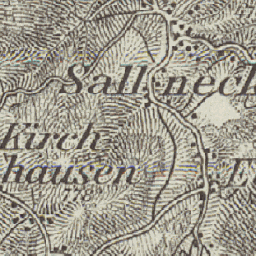 Sallneck
Kirch
hausen